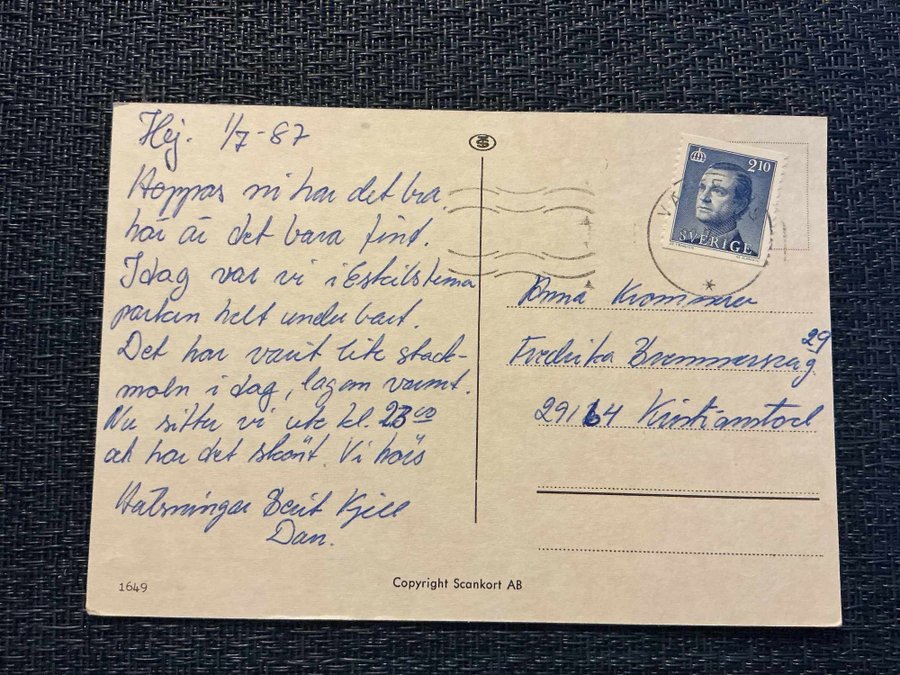 Hej. 1/7-87
Hoppas ni har det bra
här är det bara fint.
Idag var vi i Eskilstuna
parken helt underbart.
Det har varit lite stack-
moln i dag, lagom varmt.
Nu sitter vi ute kl. 23⁰⁰
och har det skönt. Vi hörs
Hälsningar Berit Kjell
Dan.
1649
Copyright Scankort AB
2.10
SVERIGE
Anna Krommer
Fredrika Bremersväg 29
29164 Kristianstad